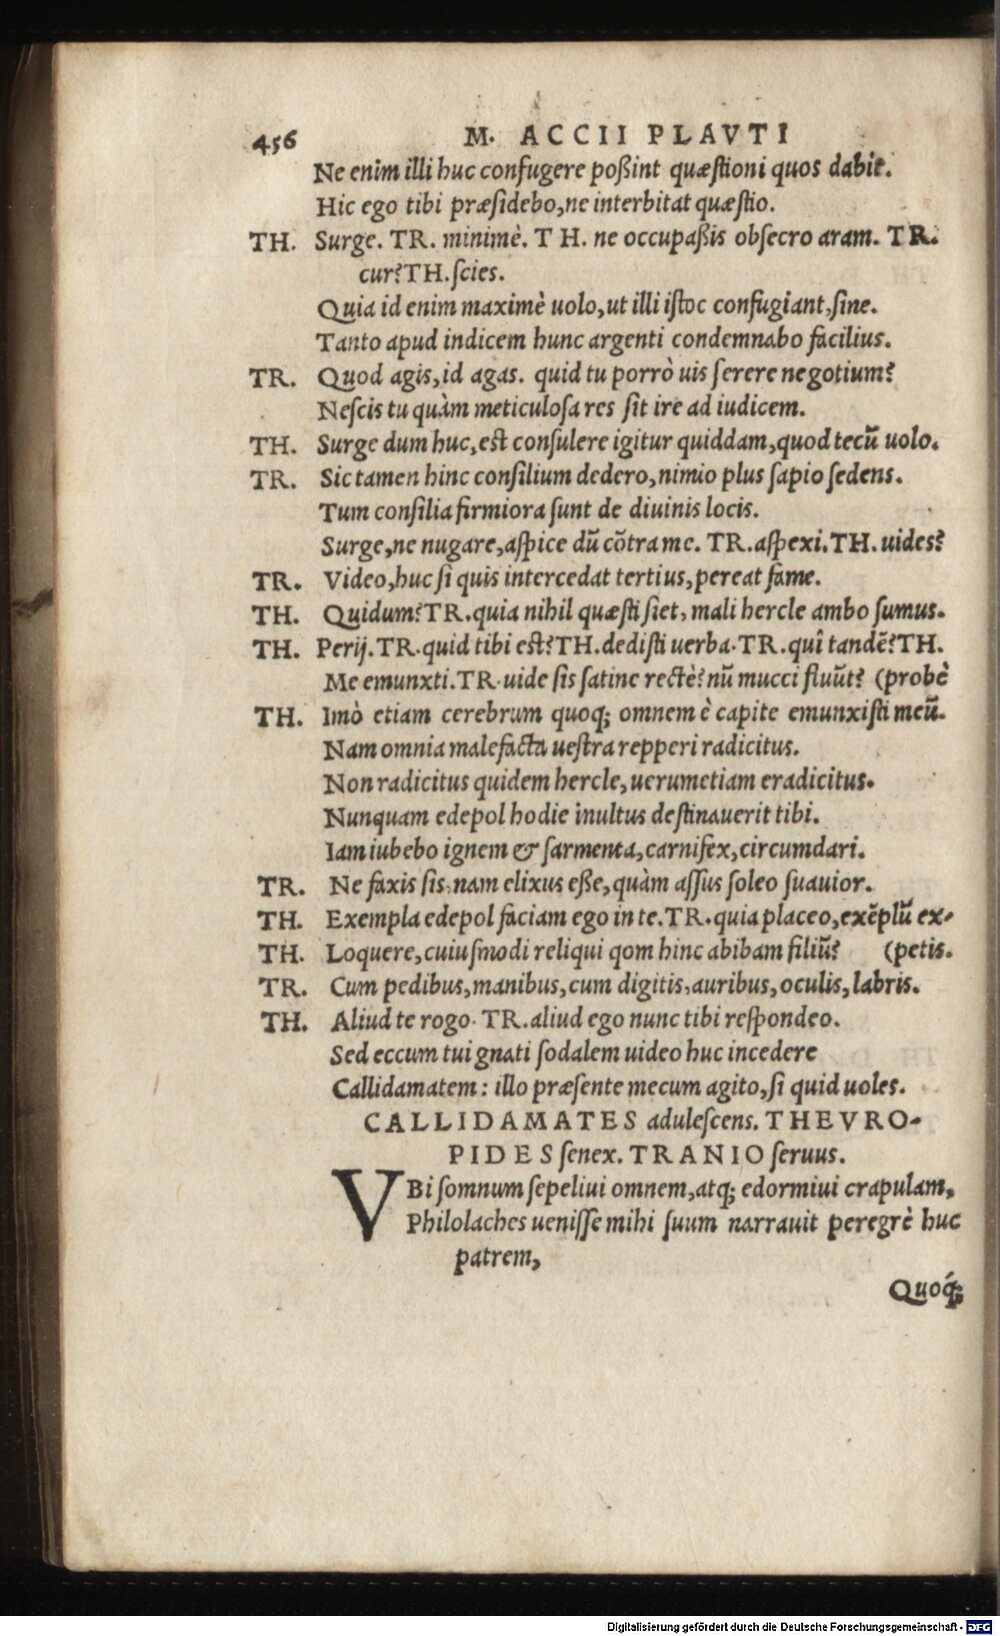 456 M. ACCII PLAVTI
Ne enim illi huc confugere poßint quæſtioni quos dabit.
Hic ego tibi præſidebo, ne interbitat quæſtio.
TH. Surge. TR. minimè. TH. ne occupaßis obſecro aram. TR.
cur? TH. ſcies.
Quia id enim maximè uolo, ut illi iſtoc confugiant, ſine.
Tanto apud indicem hunc argenti condemnabo facilius.
TR. Quod agis, id agas. quid tu porrò uis ſerere negotium?
Neſcis tu quàm meticuloſa res ſit ire ad iudicem.
TH. Surge dum huc, eſt conſulere igitur quiddam, quod tecū uolo.
TR. Sic tamen hinc conſilium dedero, nimio plus ſapio ſedens.
Tum conſilia firmiora ſunt de diuinis locis.
Surge, ne nugare, aſpice dū cōtra me. TR. aſpexi. TH. uides?
TR. Video, huc ſi quis intercedat tertius, pereat fame.
TH. Quidum? TR. quia nihil quæſti ſiet, mali hercle ambo ſumus.
TH. Perij. TR. quid tibi eſt? TH. dediſti uerba. TR. quî tandē? TH.
Me emunxti. TR. uide ſis ſatine rectè? nū mucci fluūt? (probè
TH. Imò etiam cerebrum quoq; omnem è capite emunxiſti meū.
Nam omnia malefacta ueſtra repperi radicitus.
Non radicitus quidem hercle, uerumetiam eradicitus.
Nunquam edepol hodie inultus deſtinauerit tibi.
Iam iubebo ignem & ſarmenta, carnifex, circumdari.
TR. Ne faxis ſis, nam elixus eße, quàm aſſus ſoleo ſuauior.
TH. Exempla edepol faciam ego in te. TR. quia placeo, exēplū ex-
TH. Loquere, cuiuſmodi reliqui qom hinc abibam filiū? (petis.
TR. Cum pedibus, manibus, cum digitis, auribus, oculis, labris.
TH. Aliud te rogo. TR. aliud ego nunc tibi reſpondeo.
Sed eccum tui gnati ſodalem uideo huc incedere
Callidamatem: illo præſente mecum agito, ſi quid uoles.
CALLIDAMATES aduleſcens. THEVRO-
PIDES ſenex. TRANIO ſeruus.
VBi ſomnum ſepeliui omnem, atq; edormiui crapulam,
Philolaches ueniſſe mihi ſuum narrauit peregrè huc
patrem,
Quoq́;
Digitalisierung gefördert durch die Deutsche Forschungsgemeinschaft - DFG